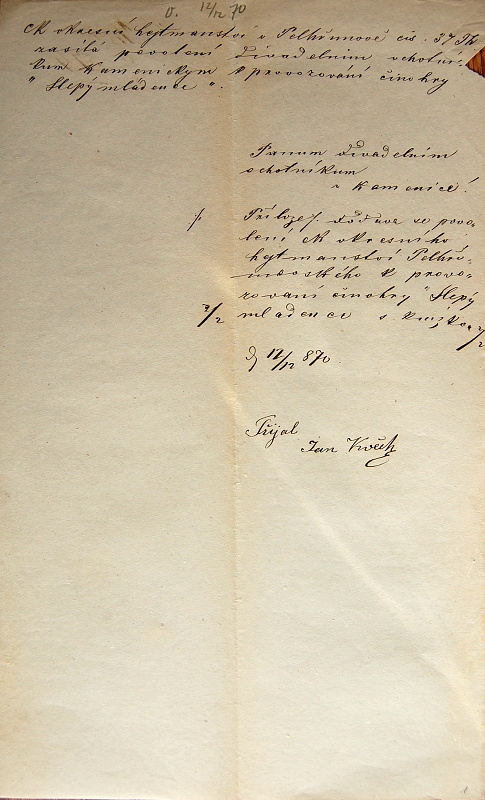 V. 12/12 70
CK okresní hejtmanství v Pelhřimově čís. 37
zasílá povolení divadelním ochotní-
kům Kamenickým k provozování činohry
"Slepý mládenec".
Pánum divadelním
ochotníkum
v Kamenici!
⁒ Přiloze ⁒ dodává se povo-
lení CK okresního
hejtmanství Pelhři-
movského k provo-
zování činohry "Slepý
2/2 mládenec s knížkou 2/2
D 12/12 870.
Přijal
Jan Květ
1